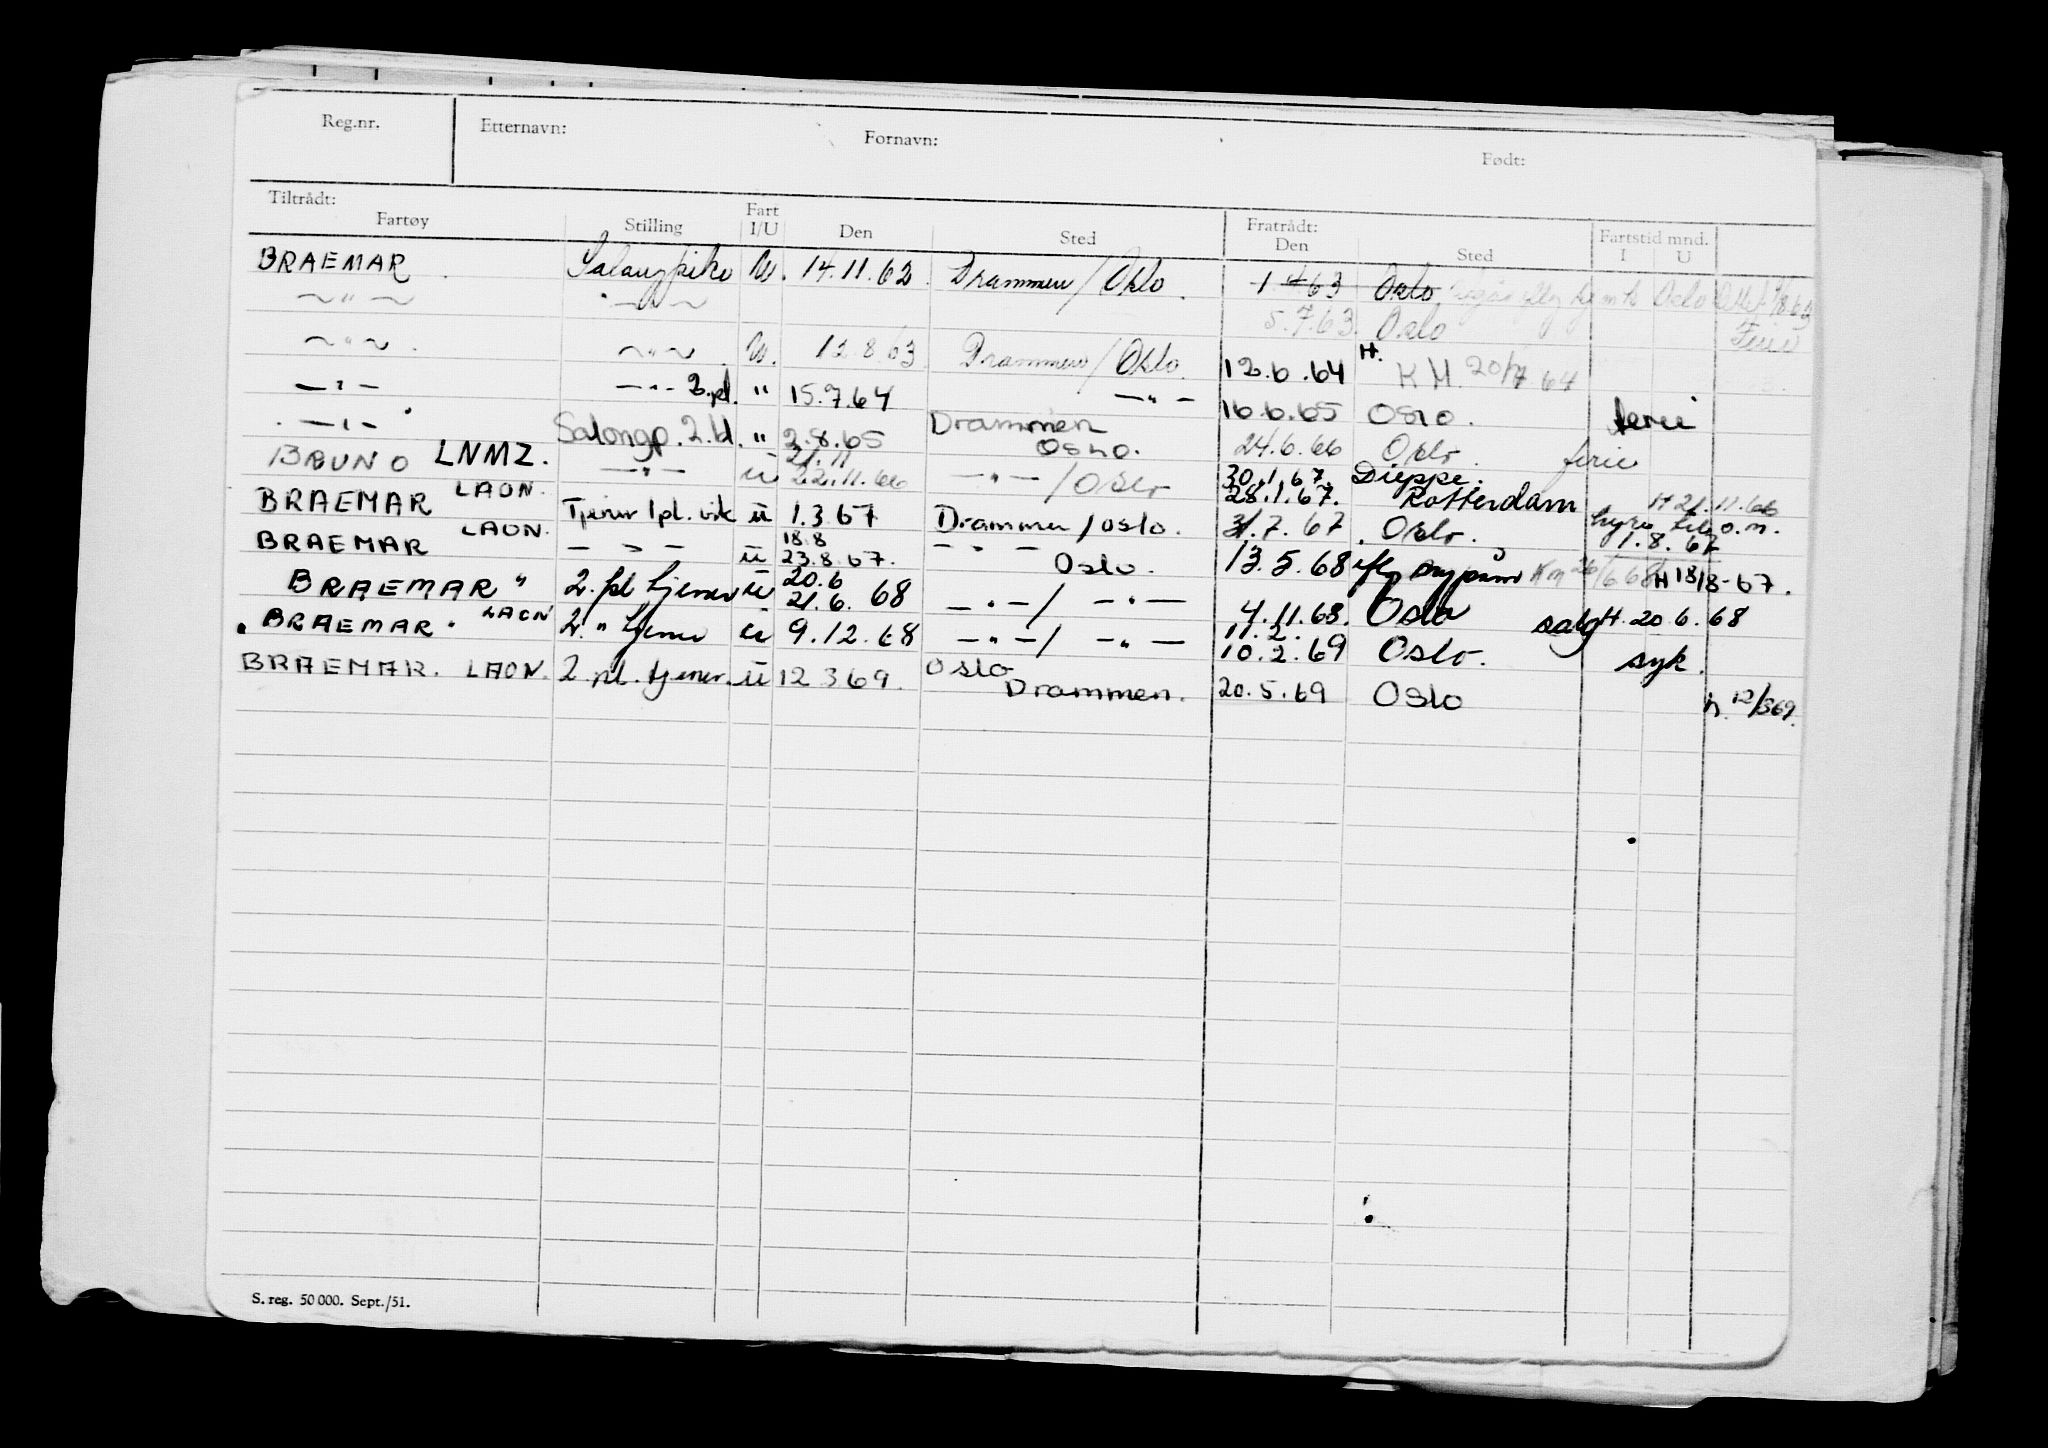 Reg.nr. Etternavn: Fornavn: Født:
Tiltrådt: Fratrådt:
Fartøy Stilling Fart I/U Den Sted Den Sted Fartstid mnd. I U
BRAEMAR Salongpike U. 14.11.62 Drammen / Oslo. 1 4 63 Oslo
~ " ~ — ~ 5.7.63. Oslo Ferie
~ " ~ . ~ " ~ U. 12.8.63 Drammen / Oslo. 12.6.64 H. K H. 20/7 64
— " — — " — 2.pl. " 15.7.64 — " — 16.6.65 Oslo. ferie
— " — Salongp. 2.kl. " 2.8.65 Drammen Oslo. 24.6.66 Oslo. ferie
BRUNO LNMZ. — " — U 21.11 22.11.66 — " — / Oslo 30.1.67. Dieppe. 28.1.67. Rotterdam H 21.11.66
BRAEMAR LAON. Tjener 1pl. vik U 1.3.67 Drammen / Oslo. 31.7.67. Oslo. hyre til o.m. 1.8.67
BRAEMAR LAON. — " — U 18.8 23.8.67. — " — Oslo. 13.5.68 H 18/8-67.
BRAEMAR " 2. pl tjener U 20.6 21.6. 68 — " — / — " — 4.11.68. Oslo salg H. 20.6.68
BRAEMAR. LAON 2. " tjener U 9.12.68 — " — / — " — 11.2. 10.2.69 Oslo. syk.
BRAEMAR. LAON. 2. pl. tjener. U 12 3 69. Oslo Drammen. 20.5.69 Oslo h. 12/3 69.
S. reg. 50 000. Sept./51.